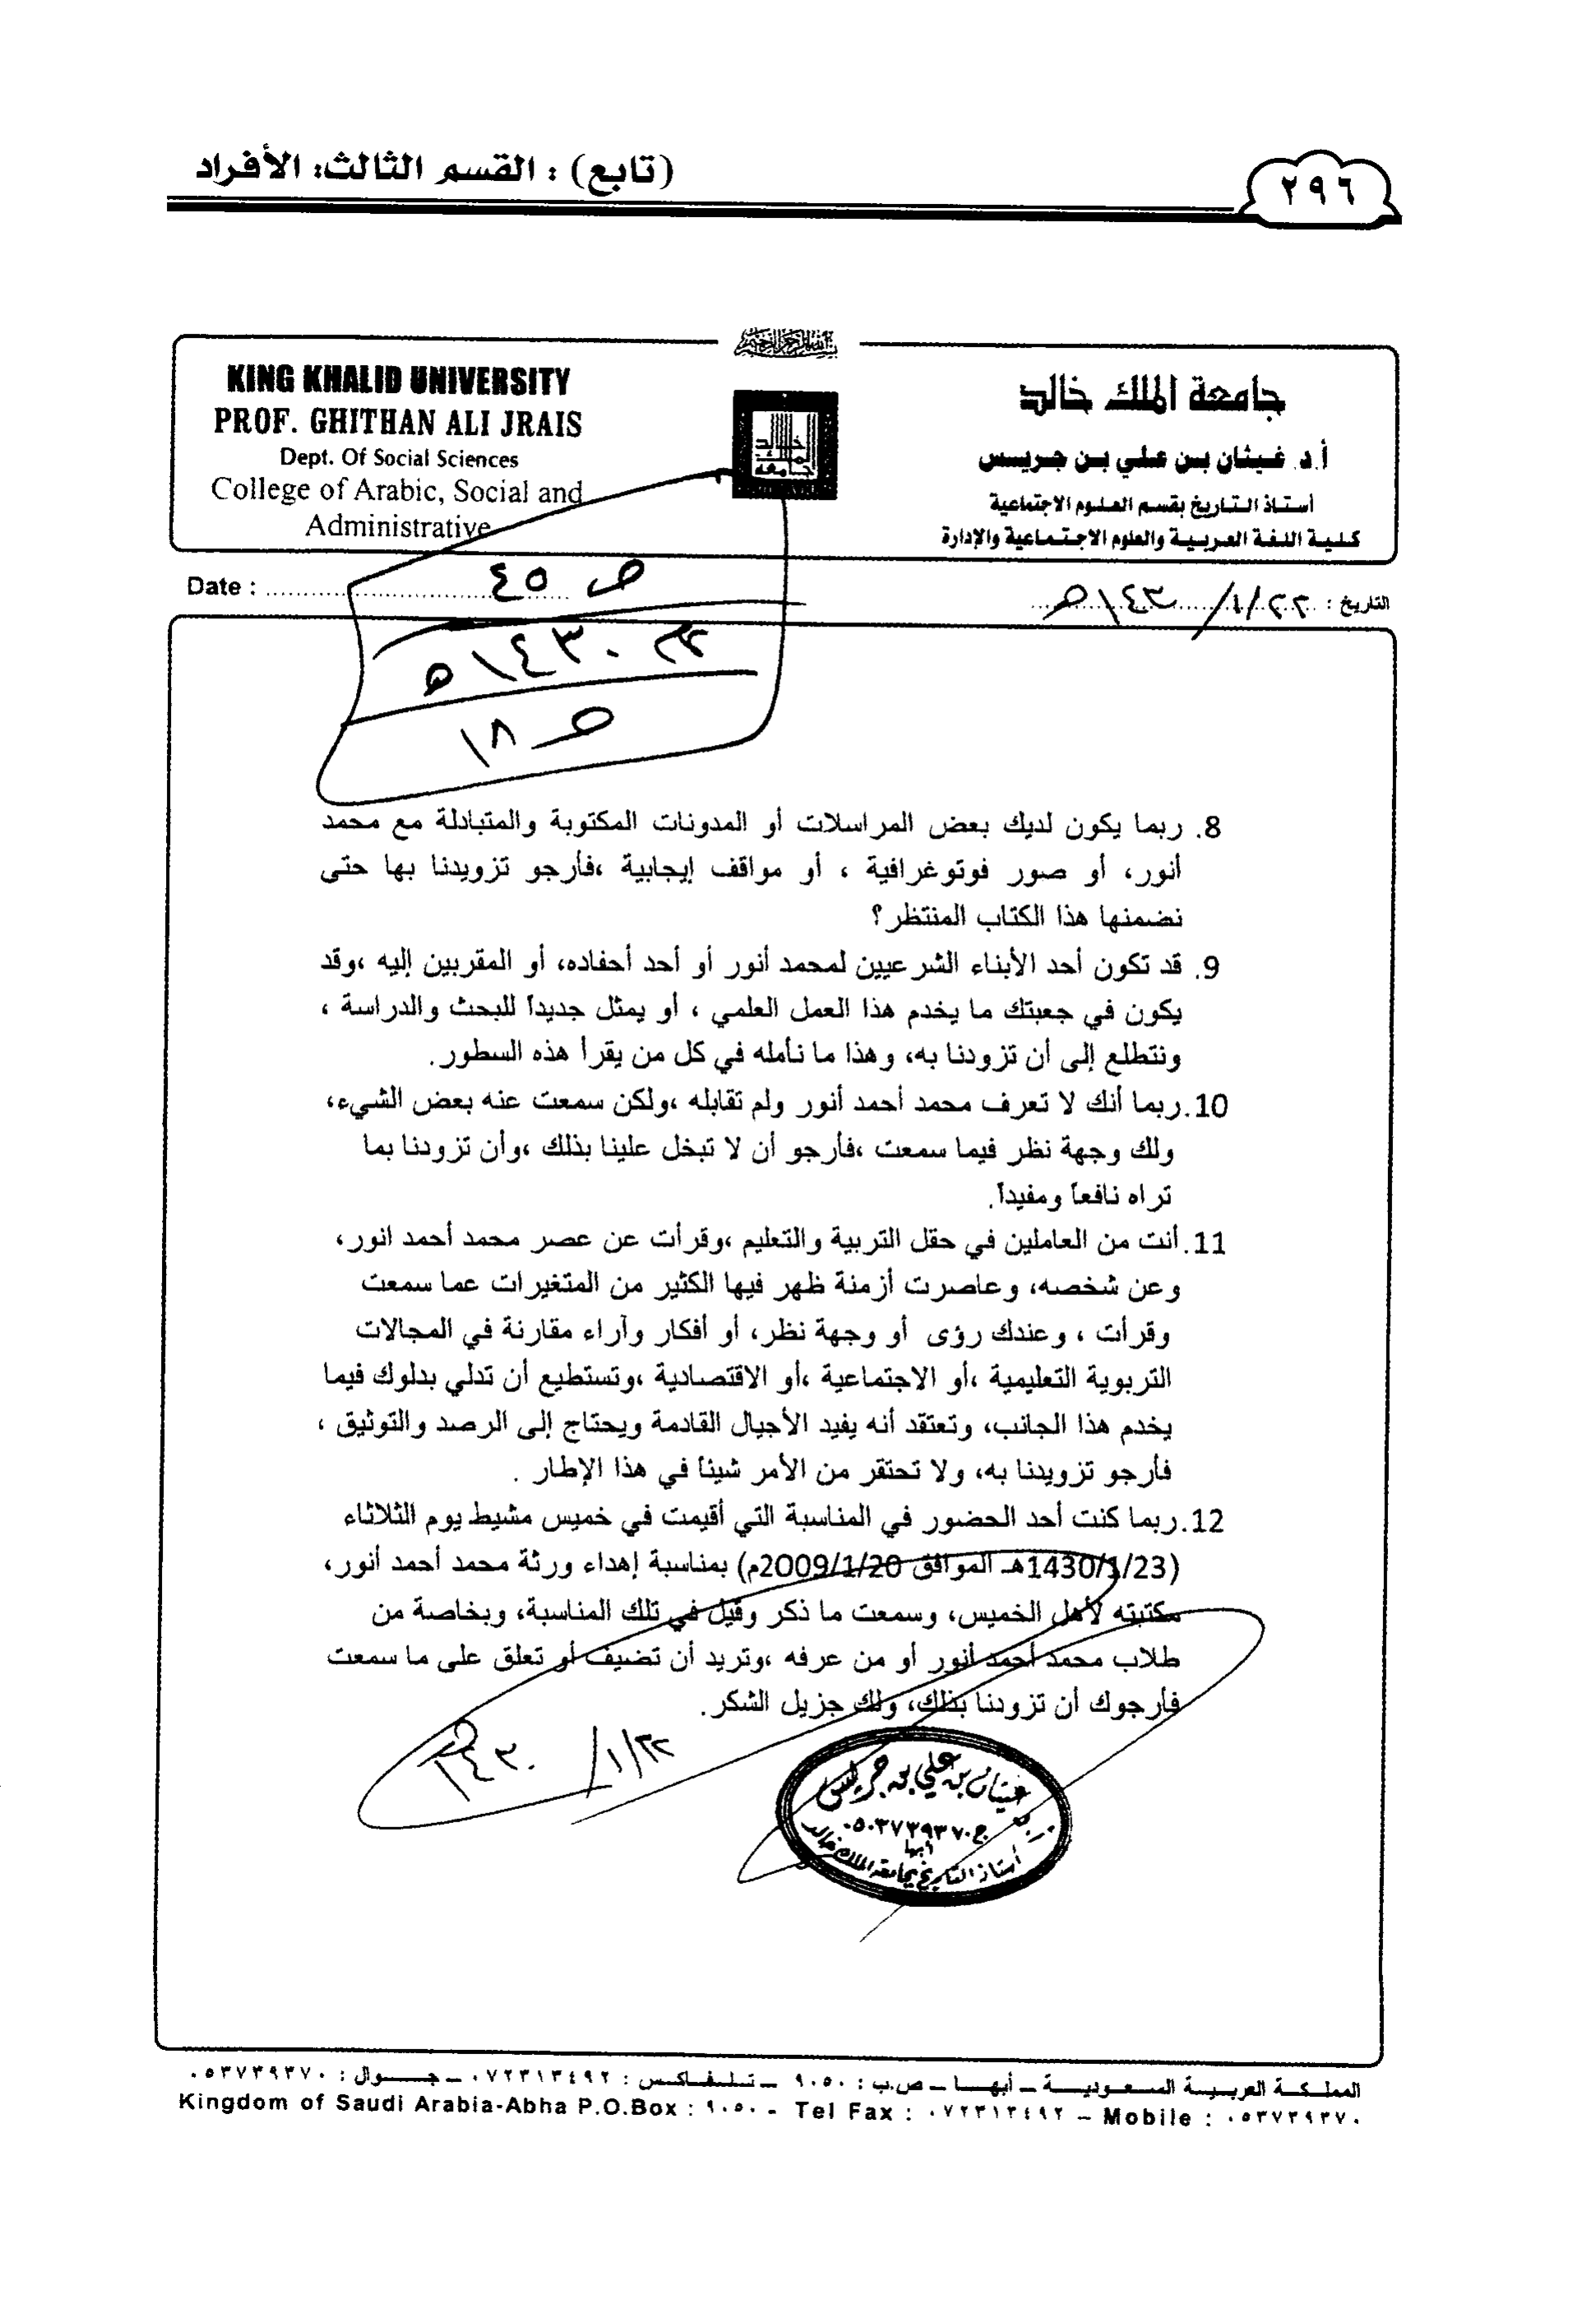 (تابع) : القسم الثالث: الأفراد
٢٩٦
KING KHALID UNIVERSITY
PROF. GHITHAN ALI JRAIS
Dept. Of Social Sciences
College of Arabic, Social and
Administrative
جامعة الملك خالد
أ.د. غيثان بن علي بن جريس
أستاذ التاريخ بقسم العلوم الاجتماعية
كلية اللغة العربية والعلوم الاجتماعية والإدارة
Date :
التاريخ :
ص ٤٥
١٤٣٠هـ
ص ١٨
8. ربما يكون لديك بعض المراسلات أو المدونات المكتوبة والمتبادلة مع محمد
أنور، أو صور فوتوغرافية ، أو مواقف إيجابية ،فأرجو تزويدنا بها حتى
نضمنها هذا الكتاب المنتظر؟
9. قد تكون أحد الأبناء الشرعيين لمحمد أنور أو أحد أحفاده، أو المقربين إليه ،وقد
يكون في جعبتك ما يخدم هذا العمل العلمي ، أو يمثل جديداً للبحث والدراسة ،
ونتطلع إلى أن تزودنا به، وهذا ما نأمله في كل من يقرأ هذه السطور.
10. ربما أنك لا تعرف محمد أحمد أنور ولم تقابله ،ولكن سمعت عنه بعض الشيء،
ولك وجهة نظر فيما سمعت ،فأرجو أن لا تبخل علينا بذلك ،وأن تزودنا بما
تراه نافعاً ومفيداً.
11. أنت من العاملين في حقل التربية والتعليم ،وقرأت عن عصر محمد أحمد انور،
وعن شخصه، وعاصرت أزمنة ظهر فيها الكثير من المتغيرات عما سمعت
وقرأت ، وعندك رؤى أو وجهة نظر، أو أفكار وآراء مقارنة في المجالات
التربوية التعليمية ،أو الاجتماعية ،أو الاقتصادية ،وتستطيع أن تدلي بدلوك فيما
يخدم هذا الجانب، وتعتقد أنه يفيد الأجيال القادمة ويحتاج إلى الرصد والتوثيق ،
فأرجو تزويدنا به، ولا تحتقر من الأمر شيئاً في هذا الإطار .
12. ربما كنت أحد الحضور في المناسبة التي أقيمت في خميس مشيط يوم الثلاثاء
(1430/1/23هـ الموافق 2009/1/20م) بمناسبة إهداء ورثة محمد أحمد أنور،
مكتبته لأهل الخميس، وسمعت ما ذكر وقيل في تلك المناسبة، وبخاصة من
طلاب محمد أحمد أنور أو من عرفه ،وتريد أن تضيف أو تعلق على ما سمعت
فأرجوك أن تزودنا بذلك، ولك جزيل الشكر.
غيثان بن علي بن جريس
ج٠٥٠٣٧٣٩٣٧٠
أبها
أستاذ التاريخ بجامعة الملك خالد
المملكة العربية السعودية – أبها – ص.ب : ٩٠٥٠ – تلفاكس : ٠٧٢٣١٣٤٩٢ – جوال : ٠٥٣٧٣٩٣٧٠
Kingdom of Saudi Arabia-Abha P.O.Box : ٩٠٥٠ - Tel Fax : ٠٧٢٣١٣٤٩٢ – Mobile : ٠٥٣٧٣٩٣٧٠